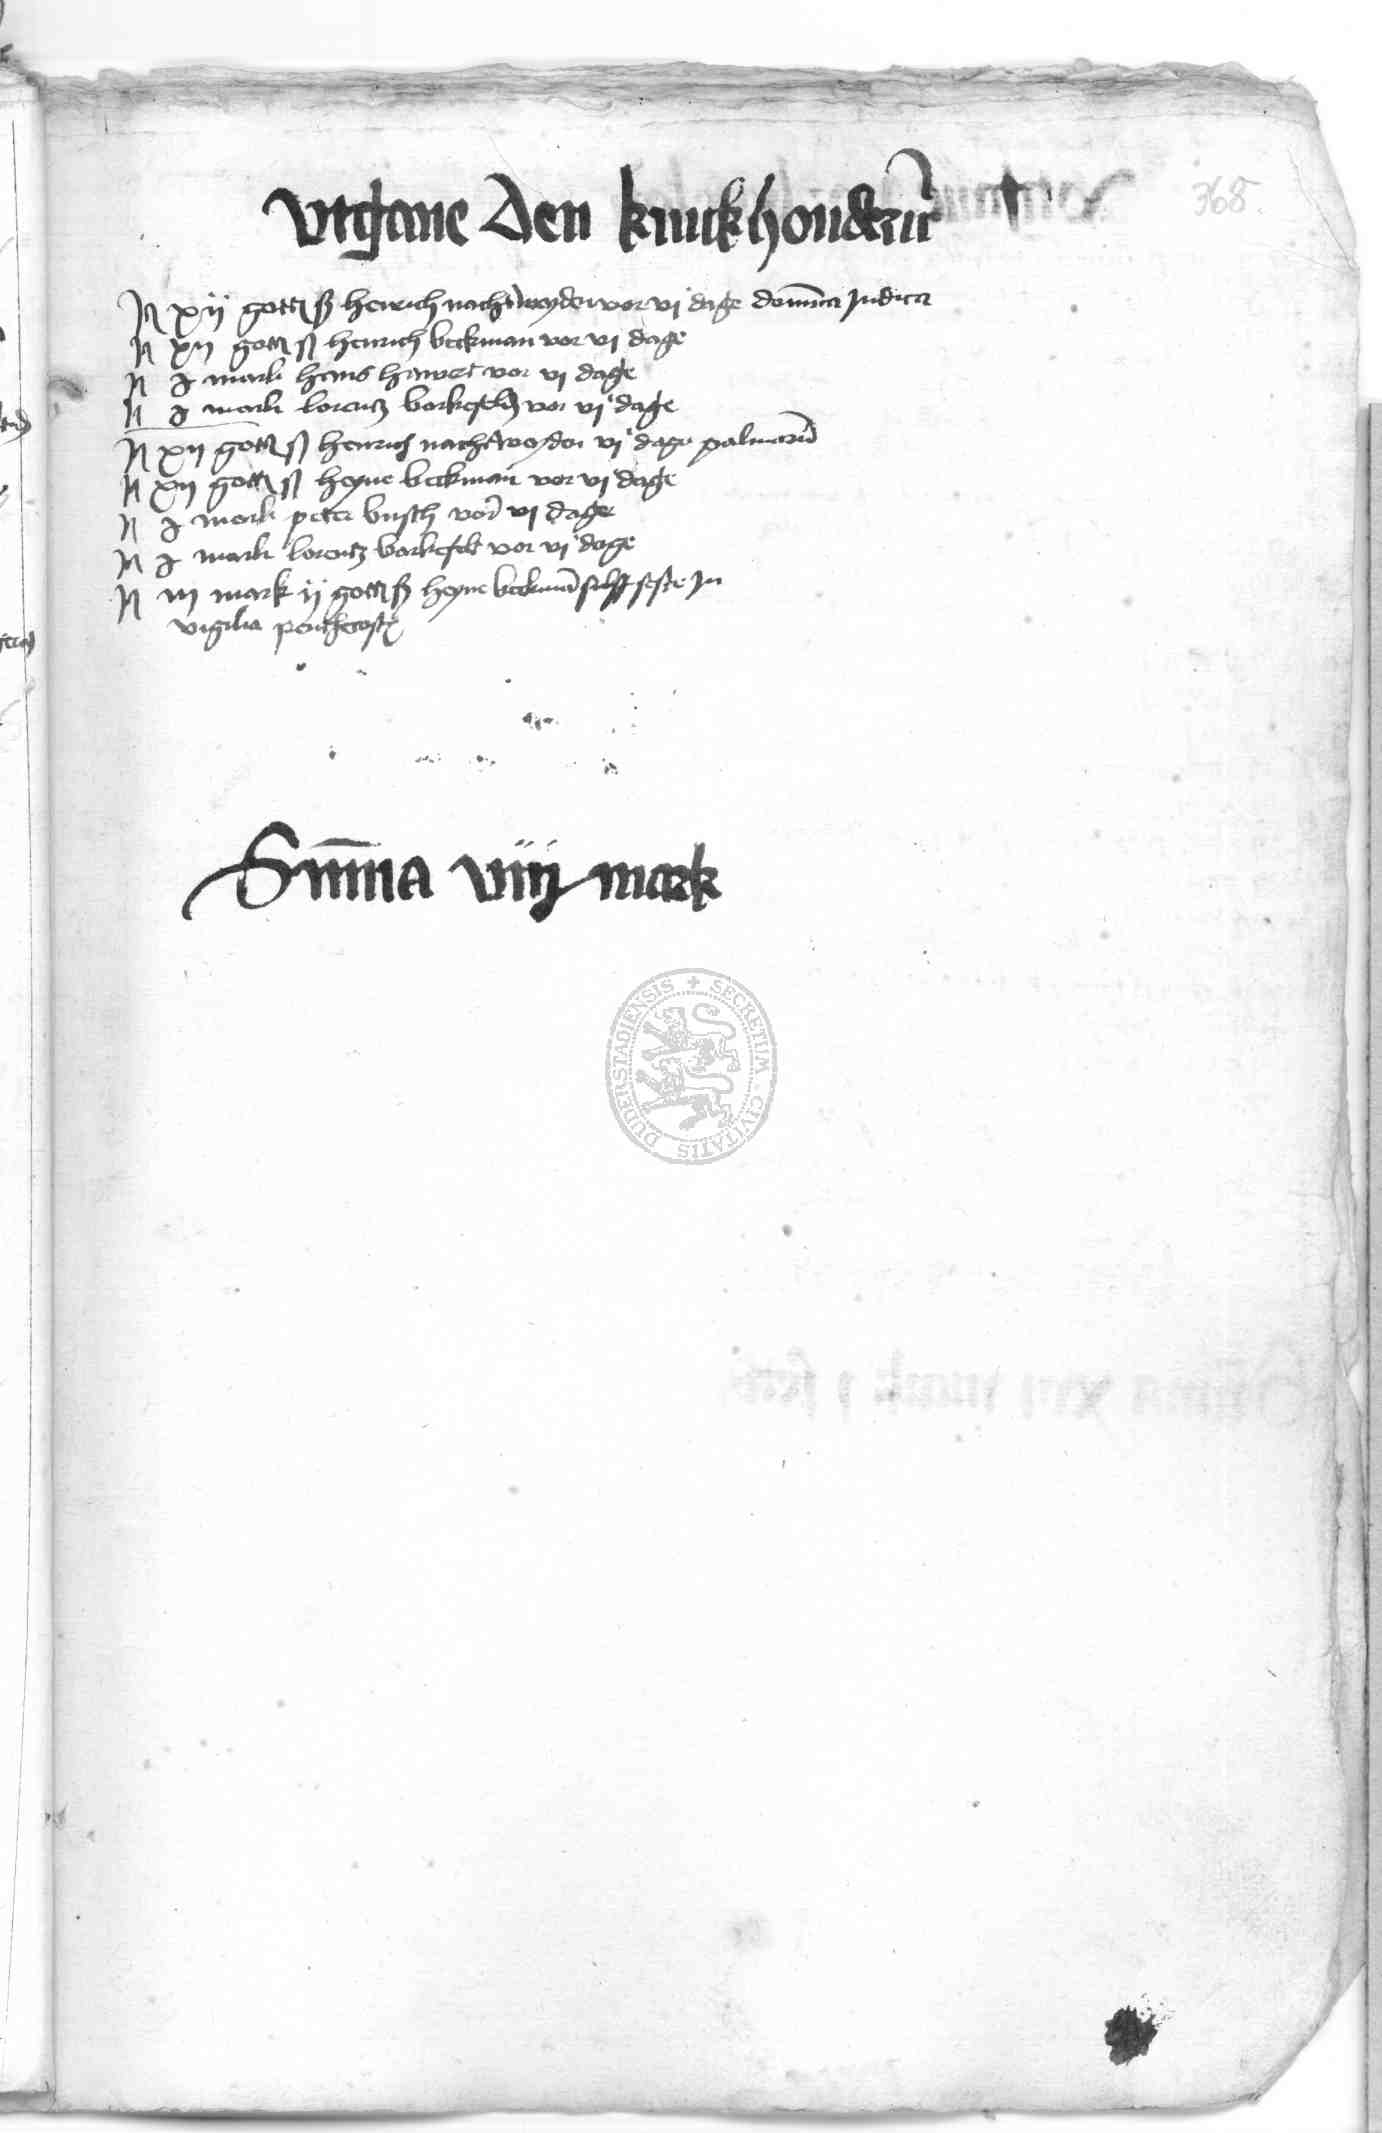 368.
Utgave den knickhonderen
It xij gott ß henrich nachtweyden vor vi dage dominica Judica
It xij gott ß henrich beckman vor vi dage
It j mark hans hauert vor vi dage
It j mark lorentz vor vi dage
It xij gott ß henrich nachtweyden vi dage palmarum
It xij gott ß heyne beckman vor vi dage
It j mark peter busch vor vi dage
It j mark lorentz vor vi dage
It iij mark ij gott ß heyne beckman sulff seste In
vigilia penthecost
Summa viiij mark
SECRETUM CIVITATIS DUDERSTADIENSIS